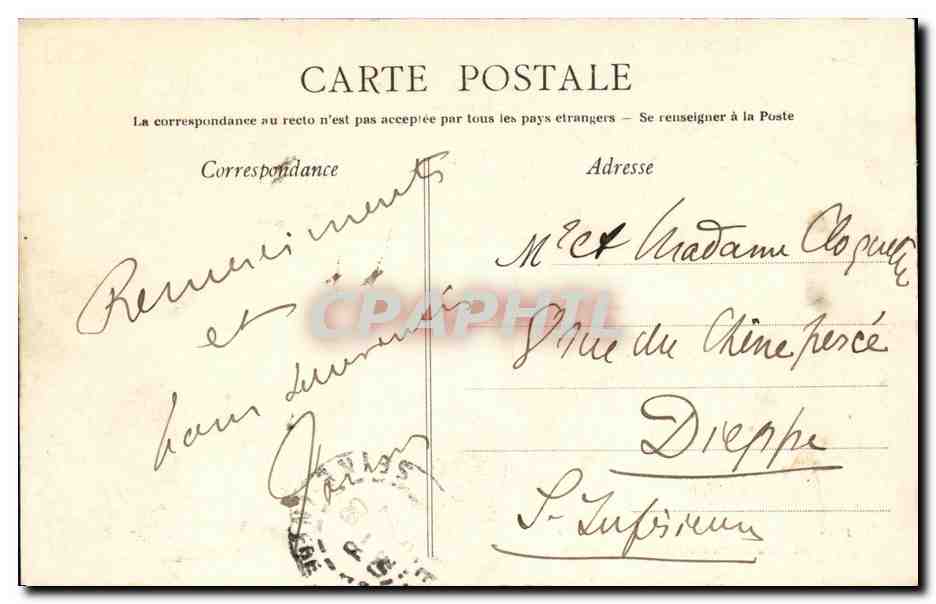 CARTE POSTALE
La correspondance au recto n'est pas acceptée par tous les pays etrangers — Se renseigner à la Poste
Correspondance
Remerciments
et
bons souvenirs
Adresse
Mr et Madame Cloquette
8 rue du Chêne percé
Dieppe
S-Inférieure
CPAPHIL